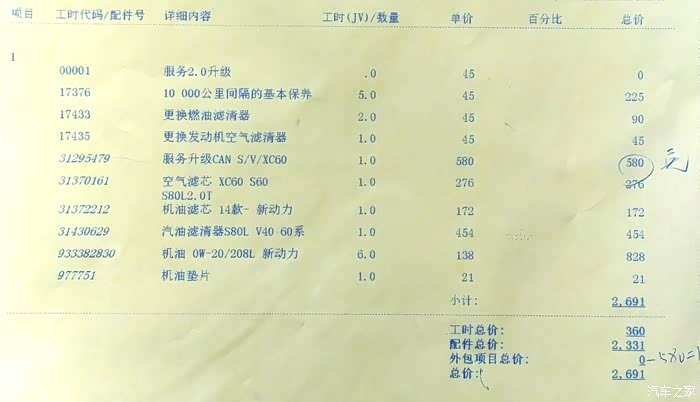 项目 工时代码/配件号 详细内容 工时(JV)/数量 单价 百分比 总价
1
00001 服务2.0升级 .0 45 0
17376 10 000公里间隔的基本保养 5.0 45 225
17433 更换燃油滤清器 2.0 45 90
17435 更换发动机空气滤清器 1.0 45 45
31295479 服务升级CAN S/V/XC60 1.0 580 580 元
31370161 空气滤芯 XC60 S60 1.0 276 276
S80L2.0T
31372212 机油滤芯 14款- 新动力 1.0 172 172
31430629 汽油滤清器S80L V40-60系 1.0 454 454
933382830 机油 0W-20/208L 新动力 6.0 138 828
977751 机油垫片 1.0 21 21
小计: 2,691
工时总价: 360
配件总价: 2,331
外包项目总价: 0 -580=
总价: 2,691
汽车之家